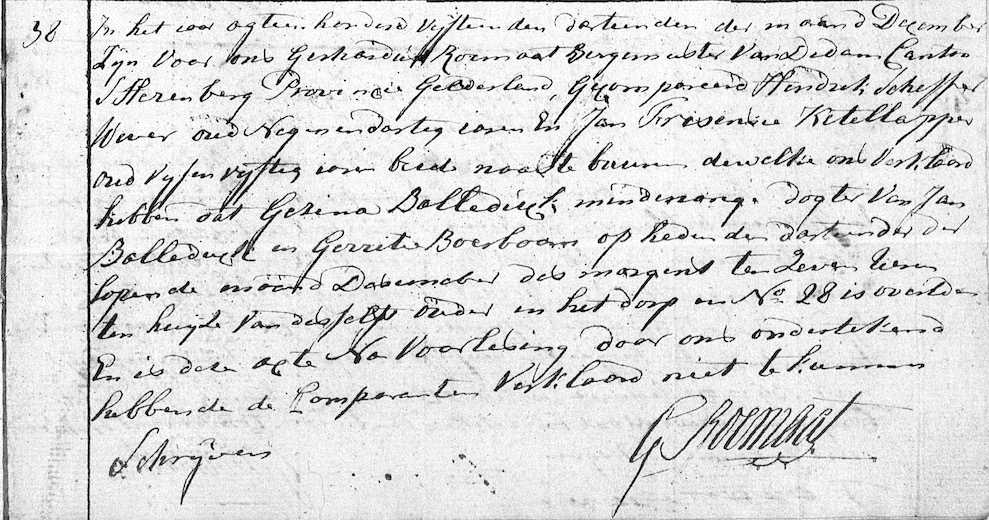 38
In het Jaar agteen honderd vyftien den dartienden der maand December
Zyn Voor ons Gerhardus Roemaat Borgemeester Van Didam Canton
S Herenberg Provincie Gelderland, Gecompareerd Hindrik Scheffer
Wever oud Negenendartig Jaren En Jan Ketellapper
oud vyf en vyftig Jaren beide naaste buren dewelke ons Verklaard
hebben dat Gesina Balledieck minderjarige dogter Van Jan
Balledieck en Gerritie Boerboom op heden den dartienden der
lopende maand Dasember des margens ten Zeven Uren
ten huyze Van desselfs ouder in het dorp en No 28 is overleden
En is dese acte Na Voorlesing door ons ondertekend
hebbende de Comparanten Verklaard niet te kunnen
Schryven
G Roemaat